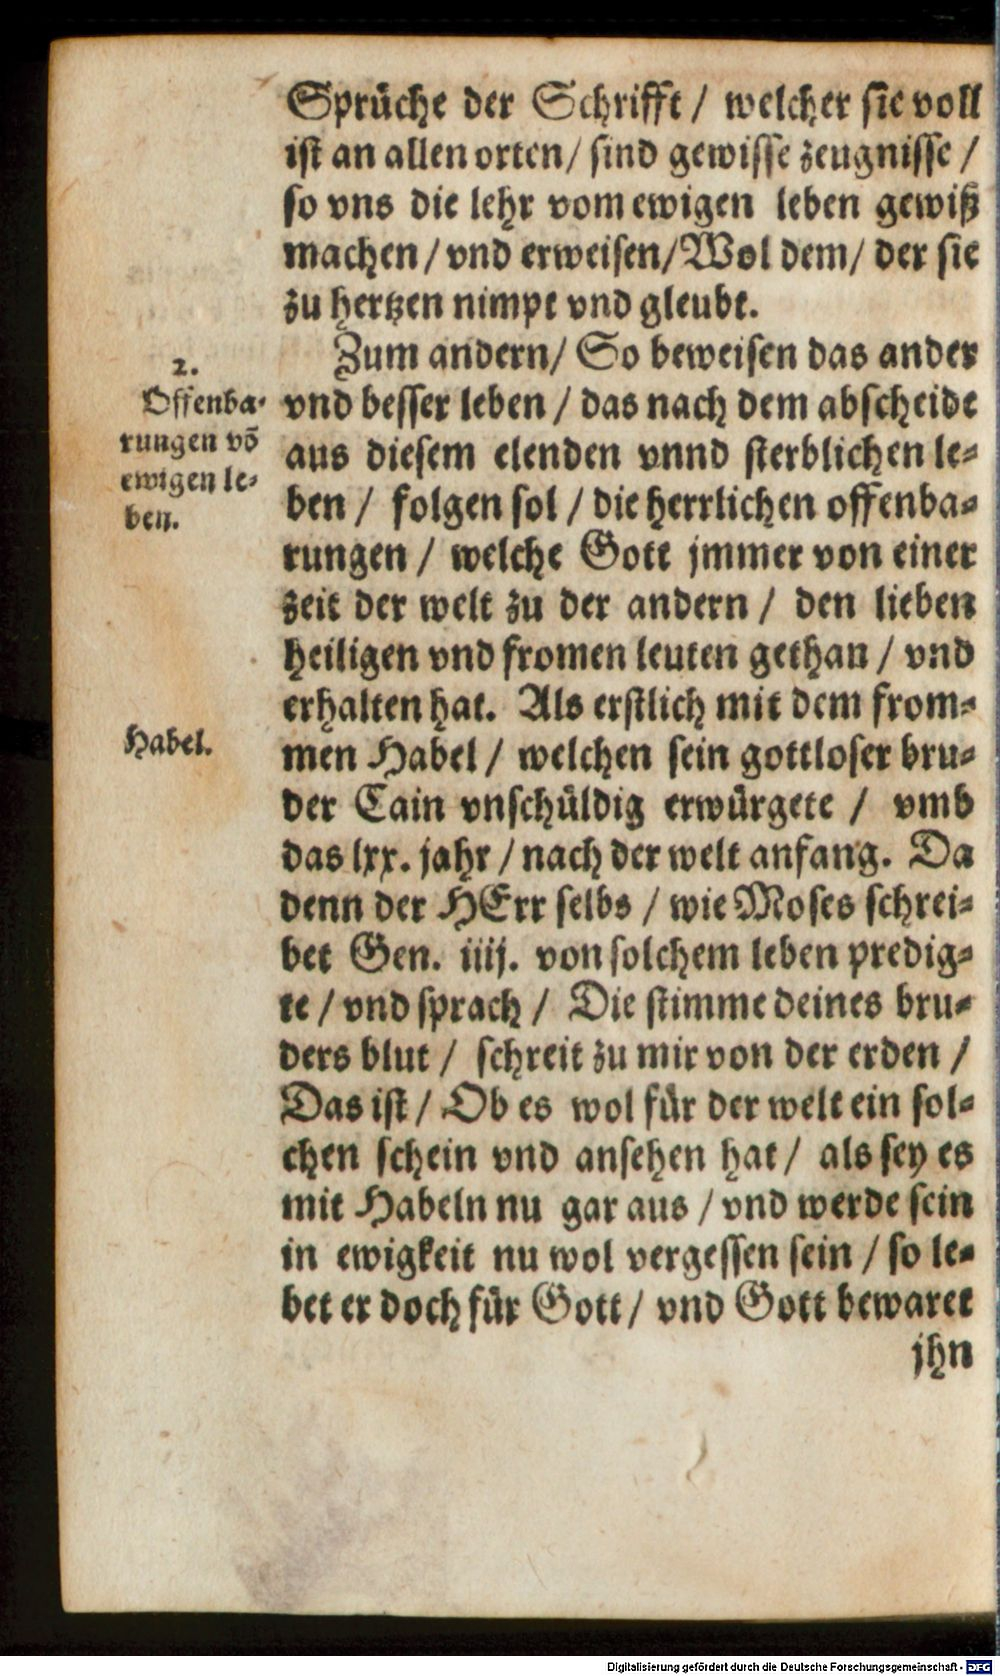 Sprüche der Schrifft / welcher sie voll
ist an allen orten / sind gewisse zeugnisse /
so vns die lehr vom ewigen leben gewiß
machen / vnd erweisen / Wol dem / der sie
zu hertzen nimpt vnd gleubt.
2.
Offenba-
rungen võ
ewigen le-
ben.
Zum andern / So beweisen das ander
vnd besser leben / das nach dem abscheide
aus diesem elenden vnnd sterblichen le-
ben / folgen sol / die herrlichen offenba-
rungen / welche Gott jmmer von einer
zeit der welt zu der andern / den lieben
heiligen vnd fromen leuten gethan / vnd
erhalten hat. Als erstlich mit dem from-
Habel.
men Habel / welchen sein gottloser bru-
der Cain vnschüldig erwürgete / vmb
das lxx. jahr / nach der welt anfang. Da
denn der HErr selbs / wie Moses schrei-
bet Gen. iiij. von solchem leben predig-
te / vnd sprach / Die stimme deines bru-
ders blut / schreit zu mir von der erden /
Das ist / Ob es wol für der welt ein sol-
chen schein vnd ansehen hat / als sey es
mit Habeln nu gar aus / vnd werde sein
in ewigkeit nu wol vergessen sein / so le-
bet er doch für Gott / vnd Gott bewaret
jhn
Digitalisierung gefördert durch die Deutsche Forschungsgemeinschaft - DFG